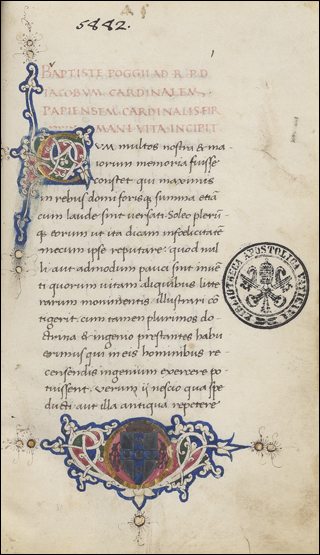 5882.
1
BAPTISTE POGGII AD R. P. D
IACOBVM CARDINALEM,
PAPIENSEM CARDINALIS FIR
MANI VITA INCIPIT
CVm multos nostra & ma-
iorum memoria fuisse
constet qui maximis
in rebus domi forisq; summa etiã
cum laude sint uersati: Soleo plerũ-
q; eorum ut ita dicam infœlicitatē
mecum ipse reputare: quod nul
li aut admodum pauci sint inuē
ti quorum uitam aliquibus litte
rarum monimentis illustrari cõ
tigerit. cum tamen plurimos do-
ctrina & ingenio prestantes habu
erimus qui in eis hominibus re-
censendis ingenium exercere po-
tuissent. Verum ii nescio qua spe
ducti aut illa antiqua repetere
BIBLIOTECA APOSTOLICA VATICANA